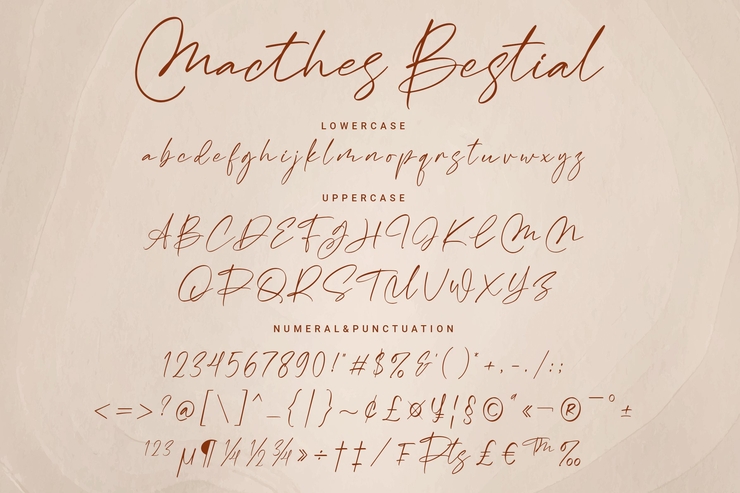 Macthes Bestial
LOWERCASE
abcdefghijklmnopqrstuvwxyz
UPPERCASE
ABCDEFGHIJKLMN
OPQRSTUVWXYZ
NUMERAL&PUNCTUATION
1234567890!"#$%&'()*+,-./:;
<=>?@[\]^_{|}~¢£¤¥¦§©ª«¬®¯°±
¹²³µ¶¼½¾»÷†‡⁄₣₧£€™‰